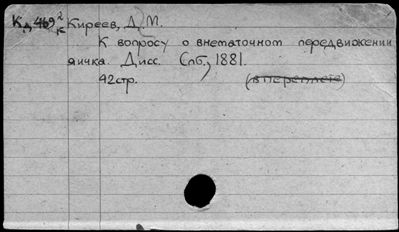 Кд 469 2/к Киреев, Д. М.
К вопросу о внематочном передвижении
яичка. Дисс. Спб., 1881.
92стр. (в переплете)